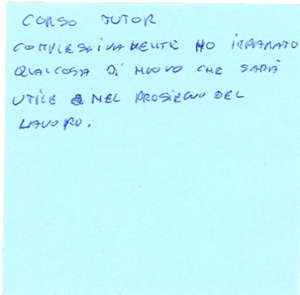 CORSO TUTOR
COMPLESSIVAMENTE HO IMPARATO
QUALCOSA DI NUOVO CHE SARÀ
UTILE NEL PROSIEGUO DEL
LAVORO.